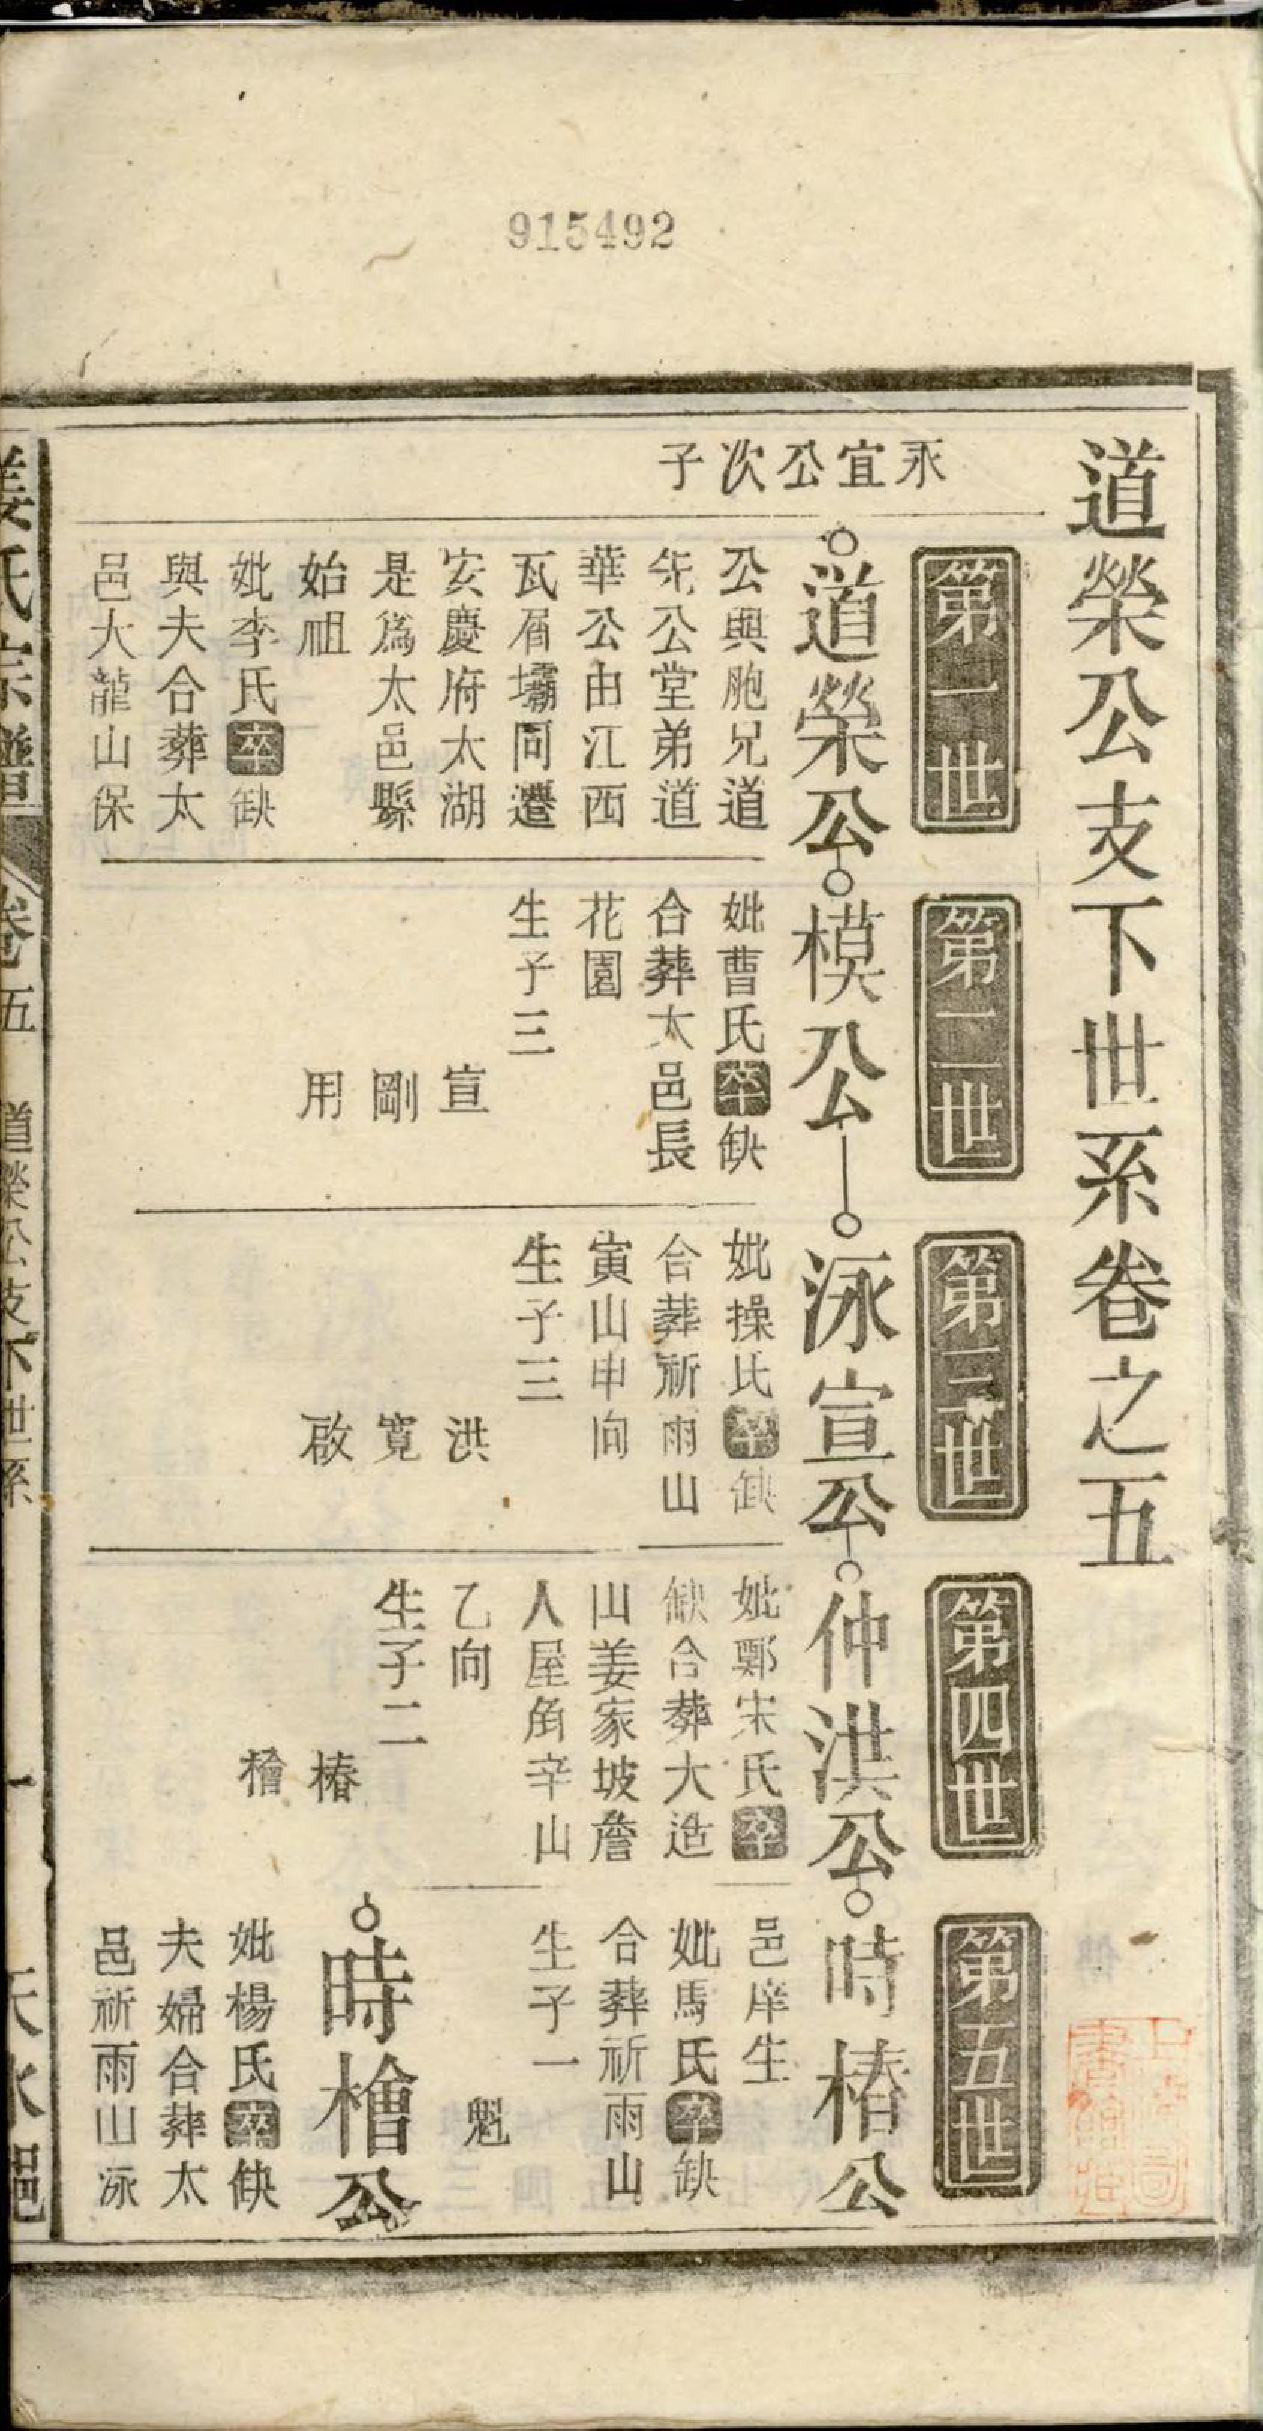 915492
道榮公支下世系卷之五
第一世
第二世
第三世
第四世
第五世
永宣公次子
道榮公
公與胞兄道
先公堂弟道
華公由江西
瓦屑壩同遷
安慶府太湖
是爲太邑縣
始祖
妣李氏卒缺
與夫合葬太
邑大龍山保
模公
妣曹氏卒缺
合葬太邑長
花園
生子三
宣
剛
用
泳宣公
妣操氏卒缺
合葬祈雨山
寅山申向
生子三
洪
寬
啟
仲洪公
妣鄭宋氏卒
缺合葬大造
山姜家坡詹
人屋角辛山
乙向
生子二
椿
檜
時椿公
邑庠生
妣馬氏卒缺
合葬祈雨山
生子一
魁
時檜公
妣楊氏卒缺
夫婦合葬太
邑祈雨山泳
姜氏宗譜
卷五
道榮公支下世系
一
天水郡